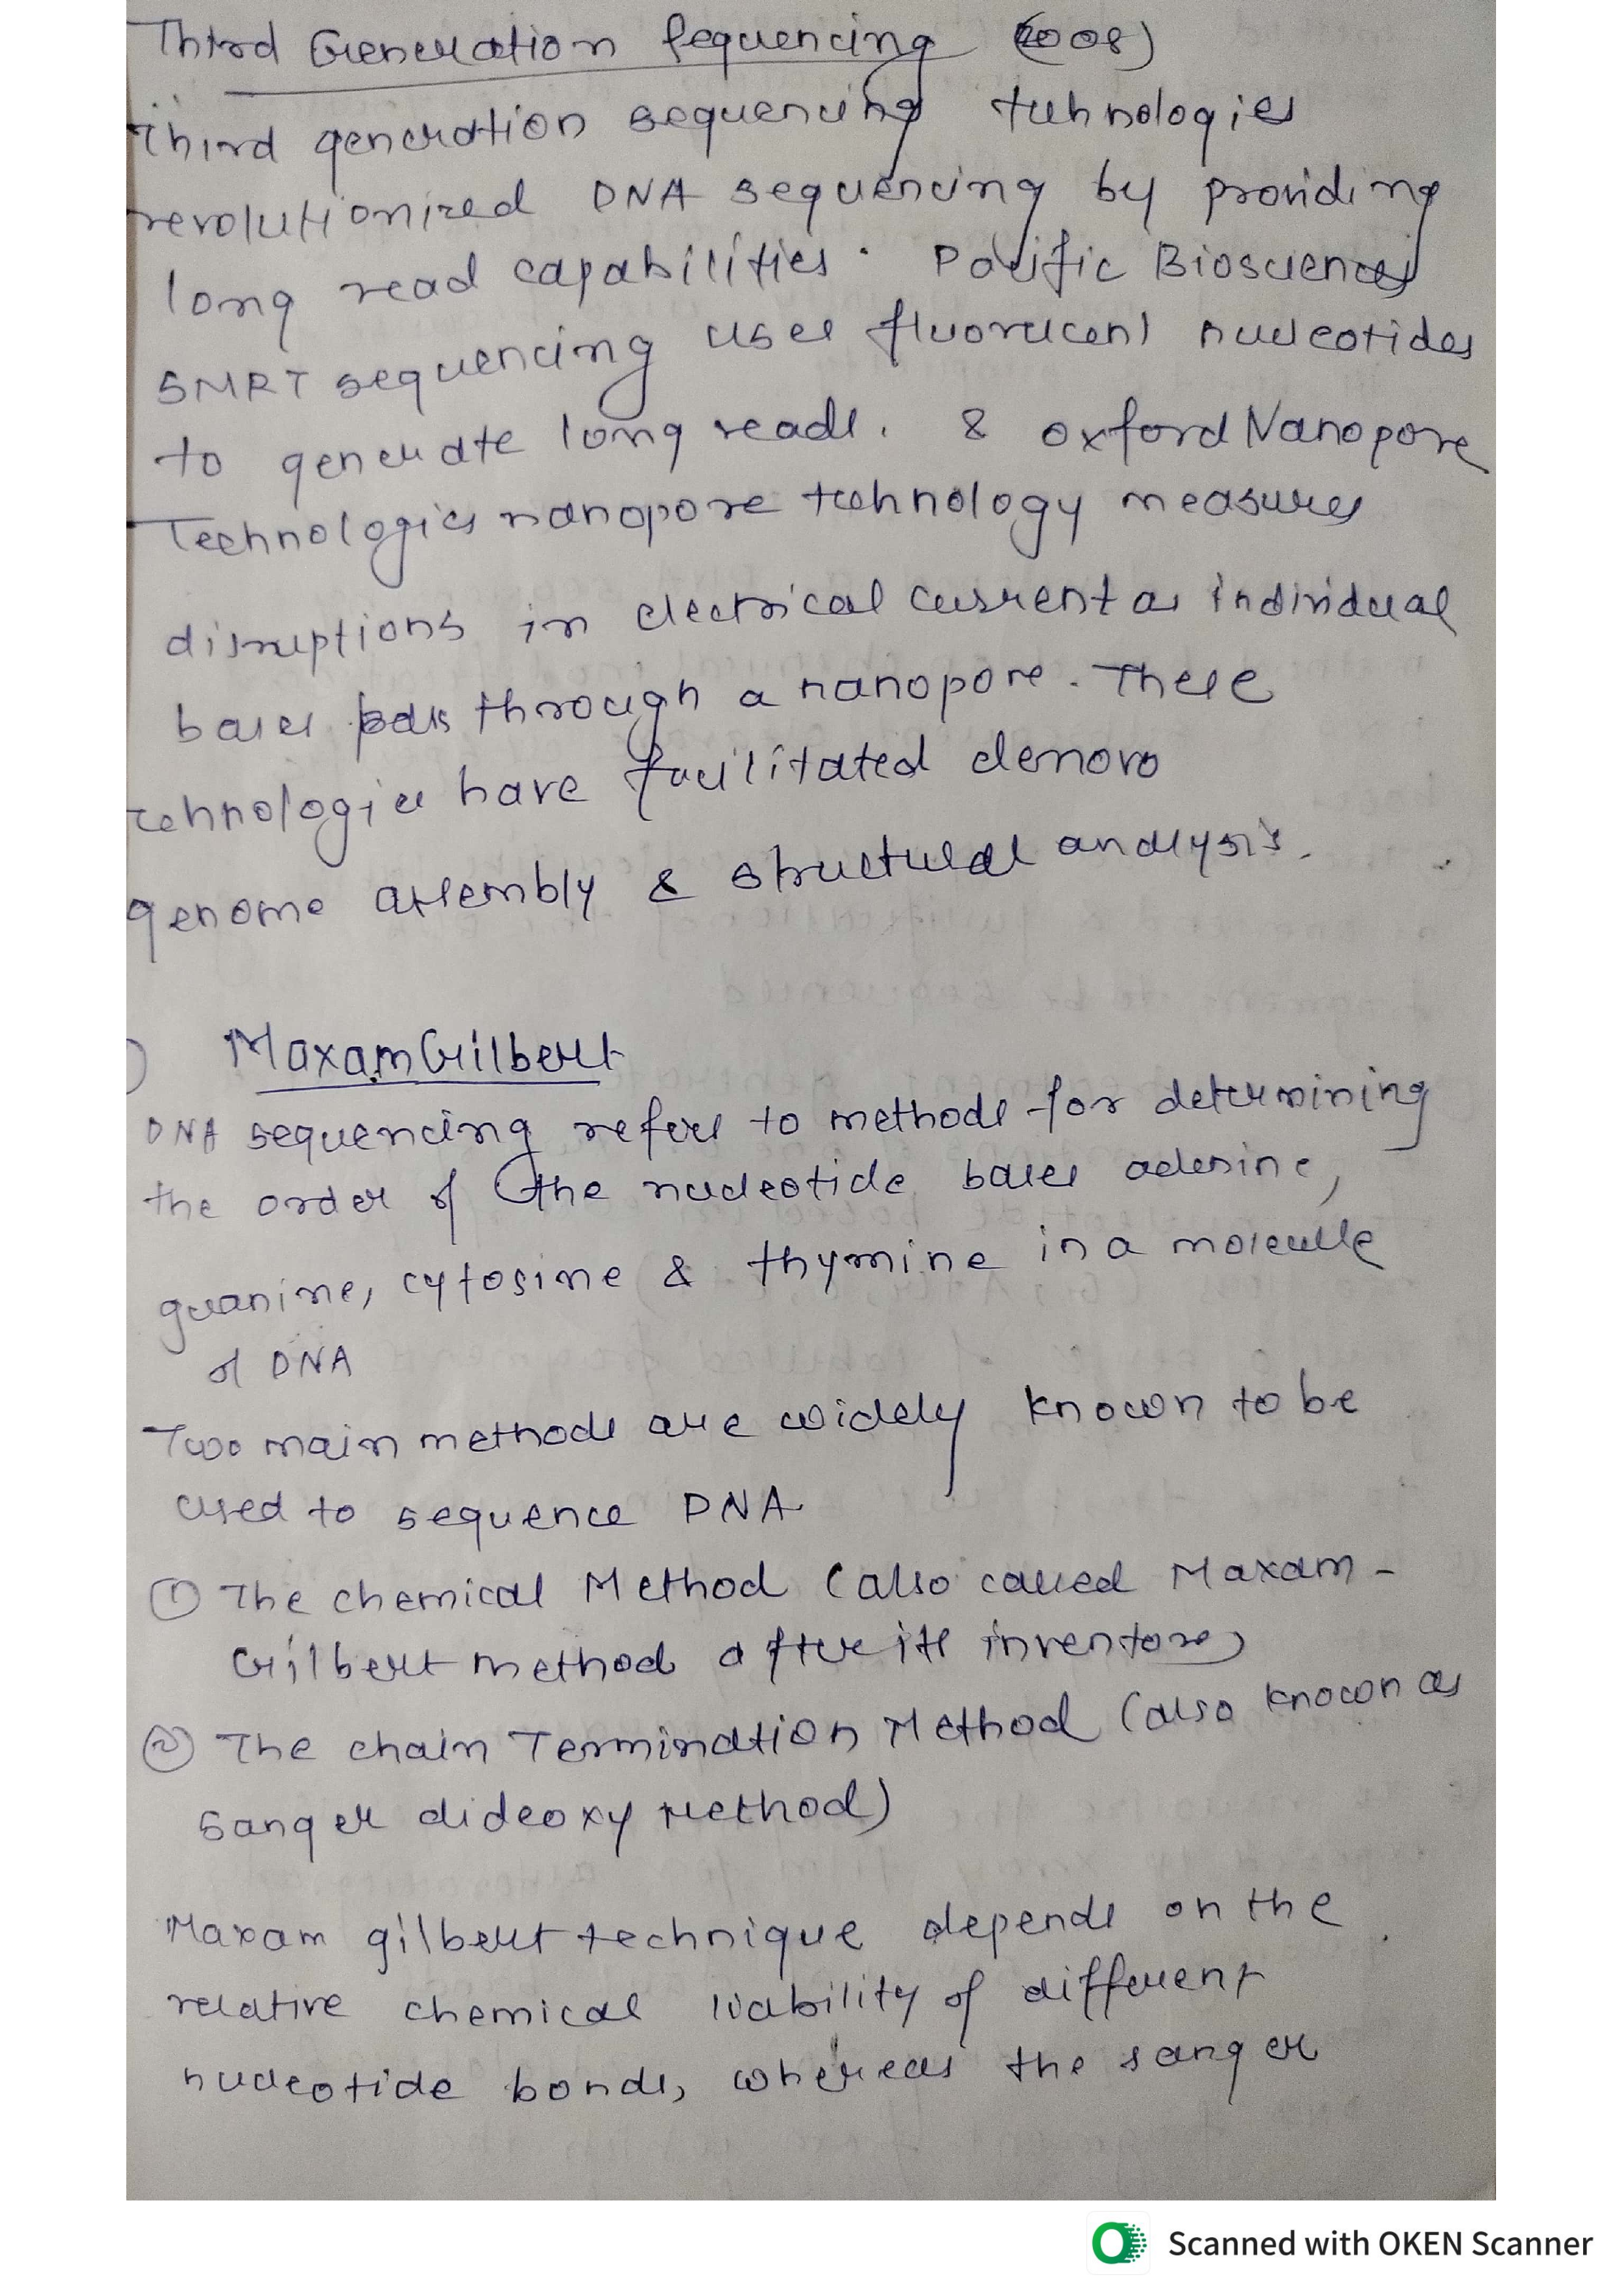 Third Generation Sequencing (2008)
Third generation sequencing technologies
revolutionized DNA sequencing by providing
long read capabilities. Pacific Biosciences
SMRT sequencing uses fluorescent nucleotides
to generate long reads. & oxford Nanopore
Technologies nanopore technology measures
disruptions in electrical current as individual
bases pass through a nanopore. These
technologies have facilitated denovo
genome assembly & structural analysis.
Maxam Gilbert
DNA sequencing refers to methods for determining
the order of the nucleotide bases adenine,
guanine, cytosine & thymine in a molecule
of DNA
Two main methods are widely known to be
used to sequence DNA
① The chemical Method (also called Maxam-
Gilbert method after its inventors)
② The chain Termination Method (also known as
Sanger dideoxy Method)
Maxam gilbert technique depends on the
relative chemical liability of different
nucleotide bonds, whereas the sanger
Scanned with OKEN Scanner